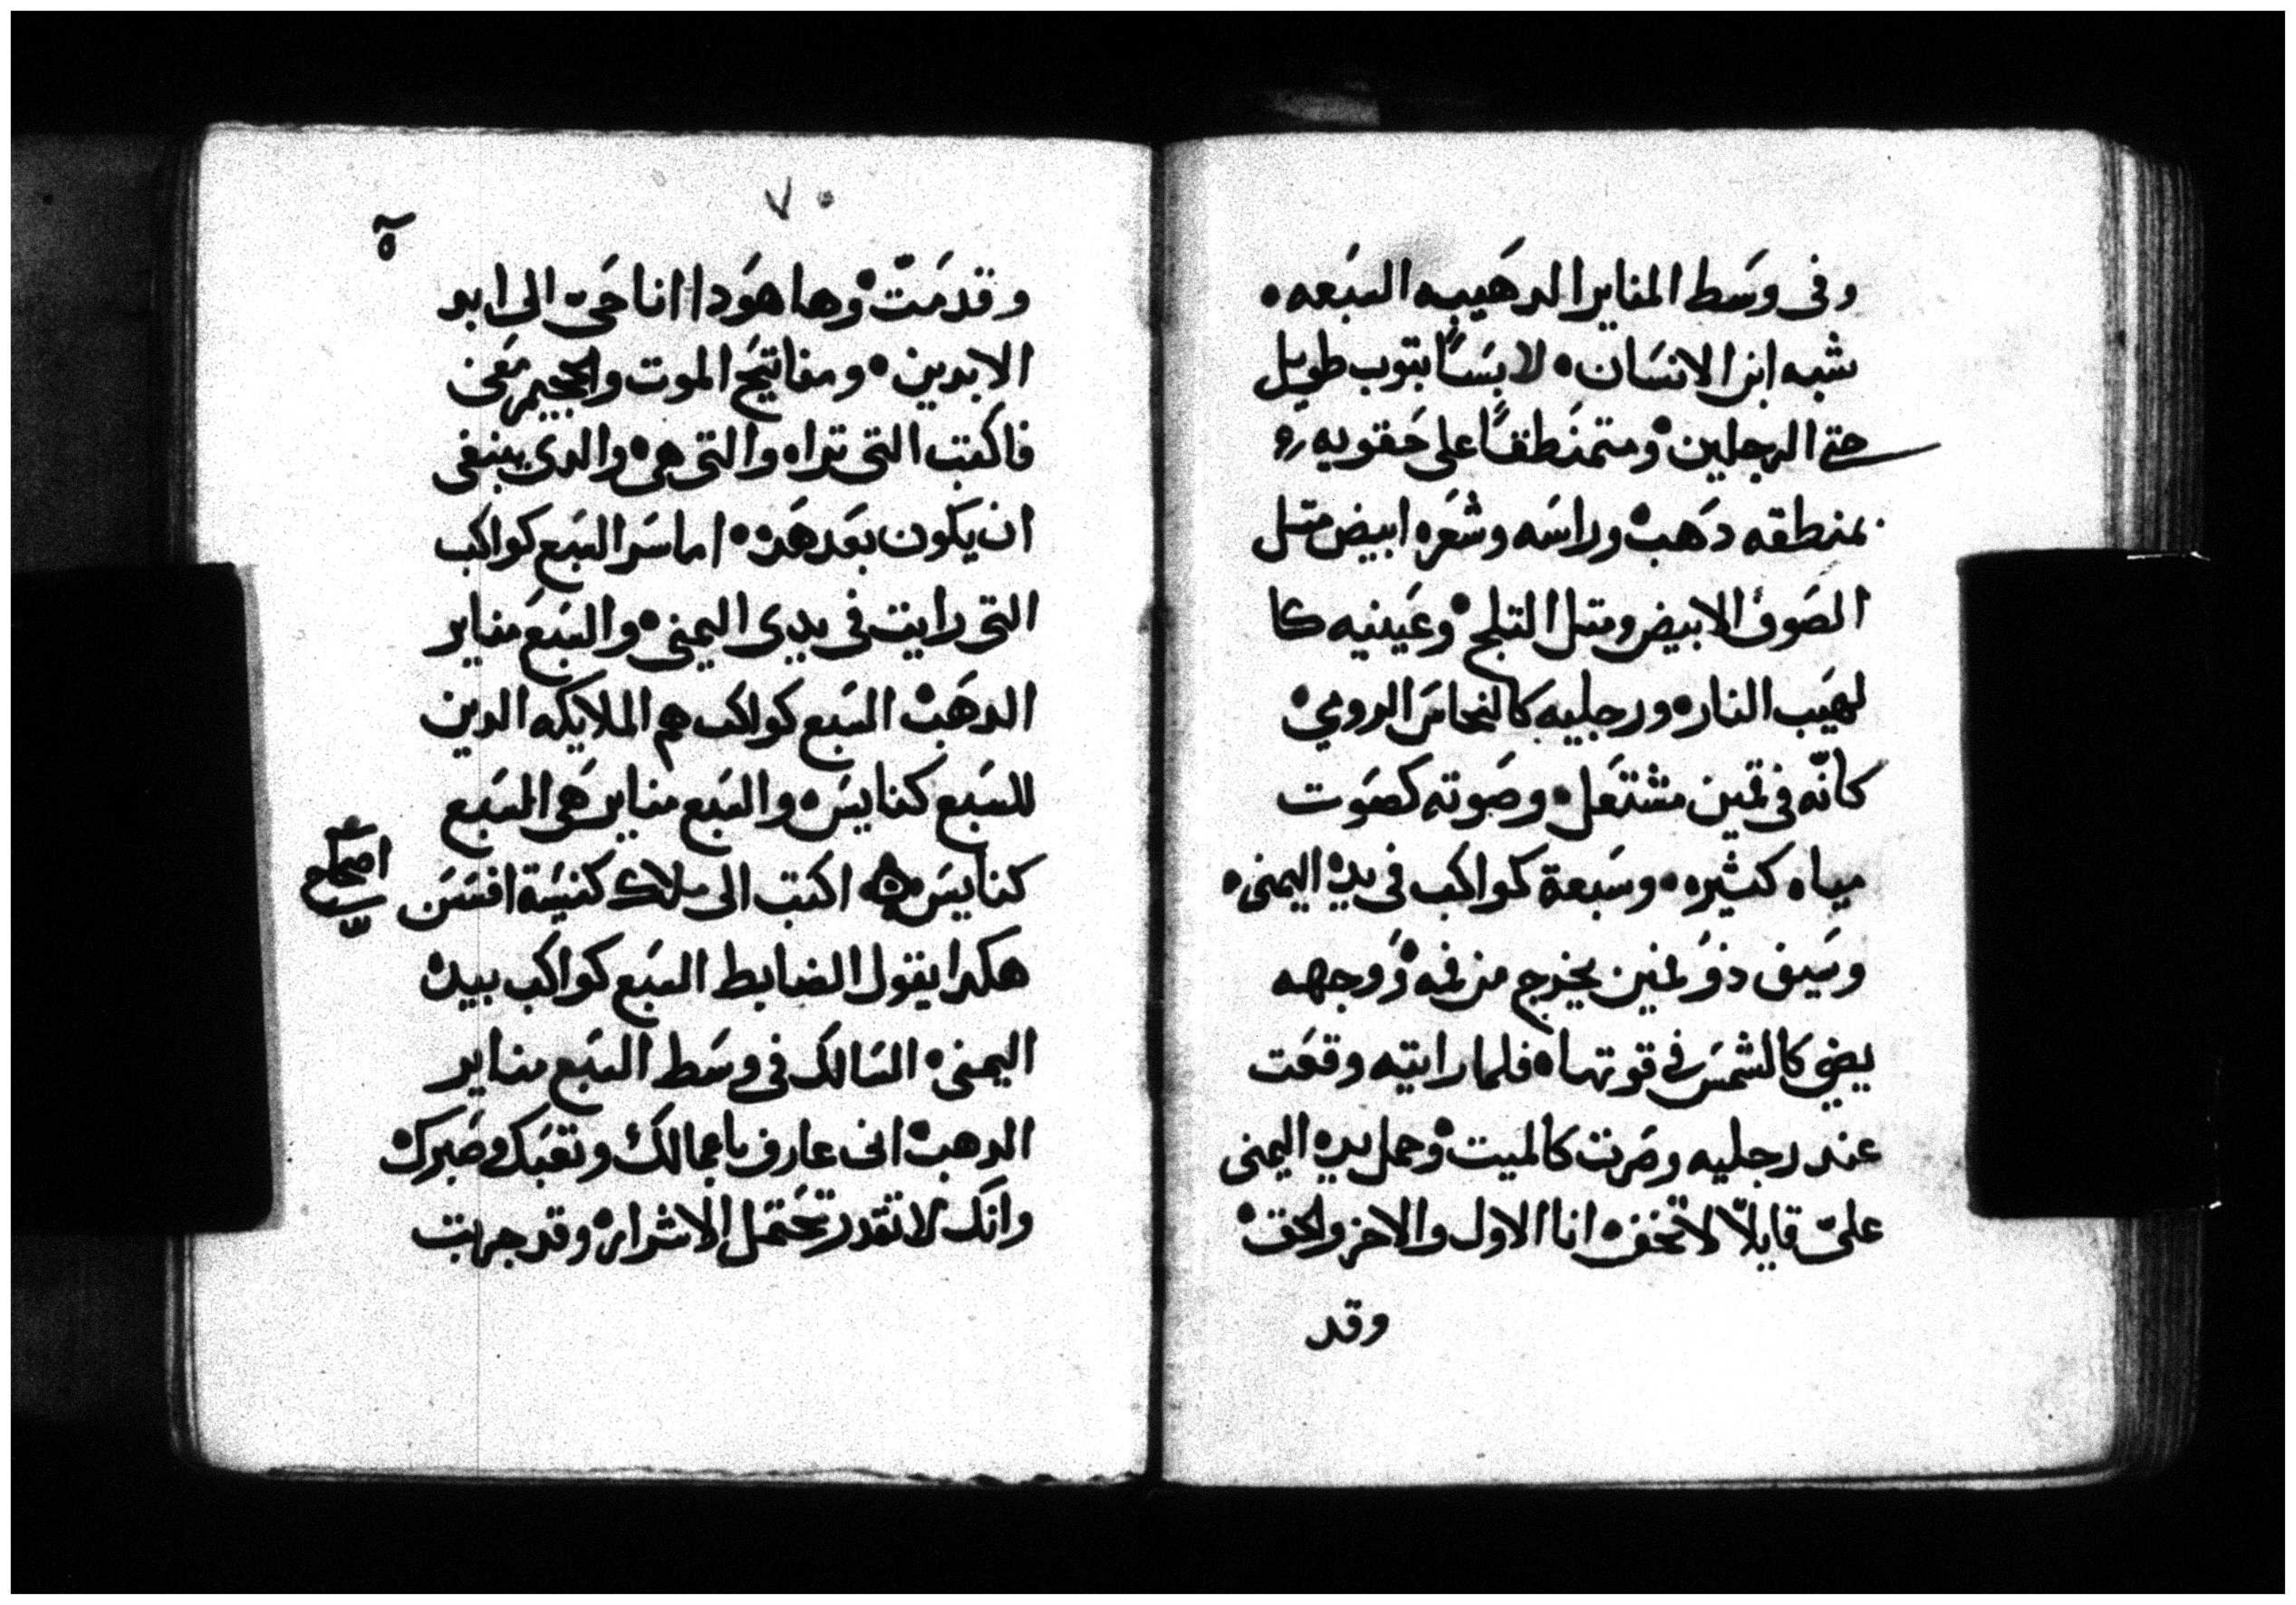 وفى وسَط المناير الدهَبيه السَبعه ٥
شبه ابن الانسَان ٥ لابسَاً بتوب طويل
حتى الرجلين ٥ ومتمنطقاً على حَقويه
بمنطقه دهَب ٥ وراسَه وشعَره ابيض متل
الصَوف الابيض ومتل التلج ٥ وعَينيه كا
لهيَب النار ٥ ورجليه كالنحاسَ الرومي ٥
كانّه في تمين مشتعَل ٥ وصَوته كصَوت
مياه كثيره ٥ وسَبعة كواكب فى يده اليمنى ٥
وسَيف ذوَ فمين يخرج من فمه ٥ وَوجهه
يضي كالشمسَ في قوتها ٥ فلما رايته وقعَت
عند رجليه وصَرت كالميت ٥ وحمل يده اليمنى
علىّ قايلاً لا تخف ٥ انا الاول والاخر والحق ٥
وقد
٧٠
٥
وقدمَتّ ٥ وها هوَدا انا حَيّ الى ابد
الابدين ٥ ومفاتيَح الموت والجحيم معَى
فاكتب التى تراه والتى هى ٥ والدى ينبغى
ان يكَون بعَد هَده ٥ اما سَر السَبع كواكب
التى رايت فى يدى اليمنى ٥ والسَبعَ مناير
الدهَب ٥ السَبع كواكب هم الملايكه الدين
للسَبع كنايسَ ٥ والسَبع مناير هَى السَبع
كنايسَ ٥ اكتب الى ملاك كنيسَة افسَسَ
اصحاح
هكدا يقول الضابط السَبع كواكب بيده
اليمنى ٥ السَالك في وسَط السَبع مناير
الدهب ٥ انى عارف باعمالك وتعَبك وصَبرك ٥
وانك لا تقدر تحَتمَل الاشرار ٥ وقد جربت